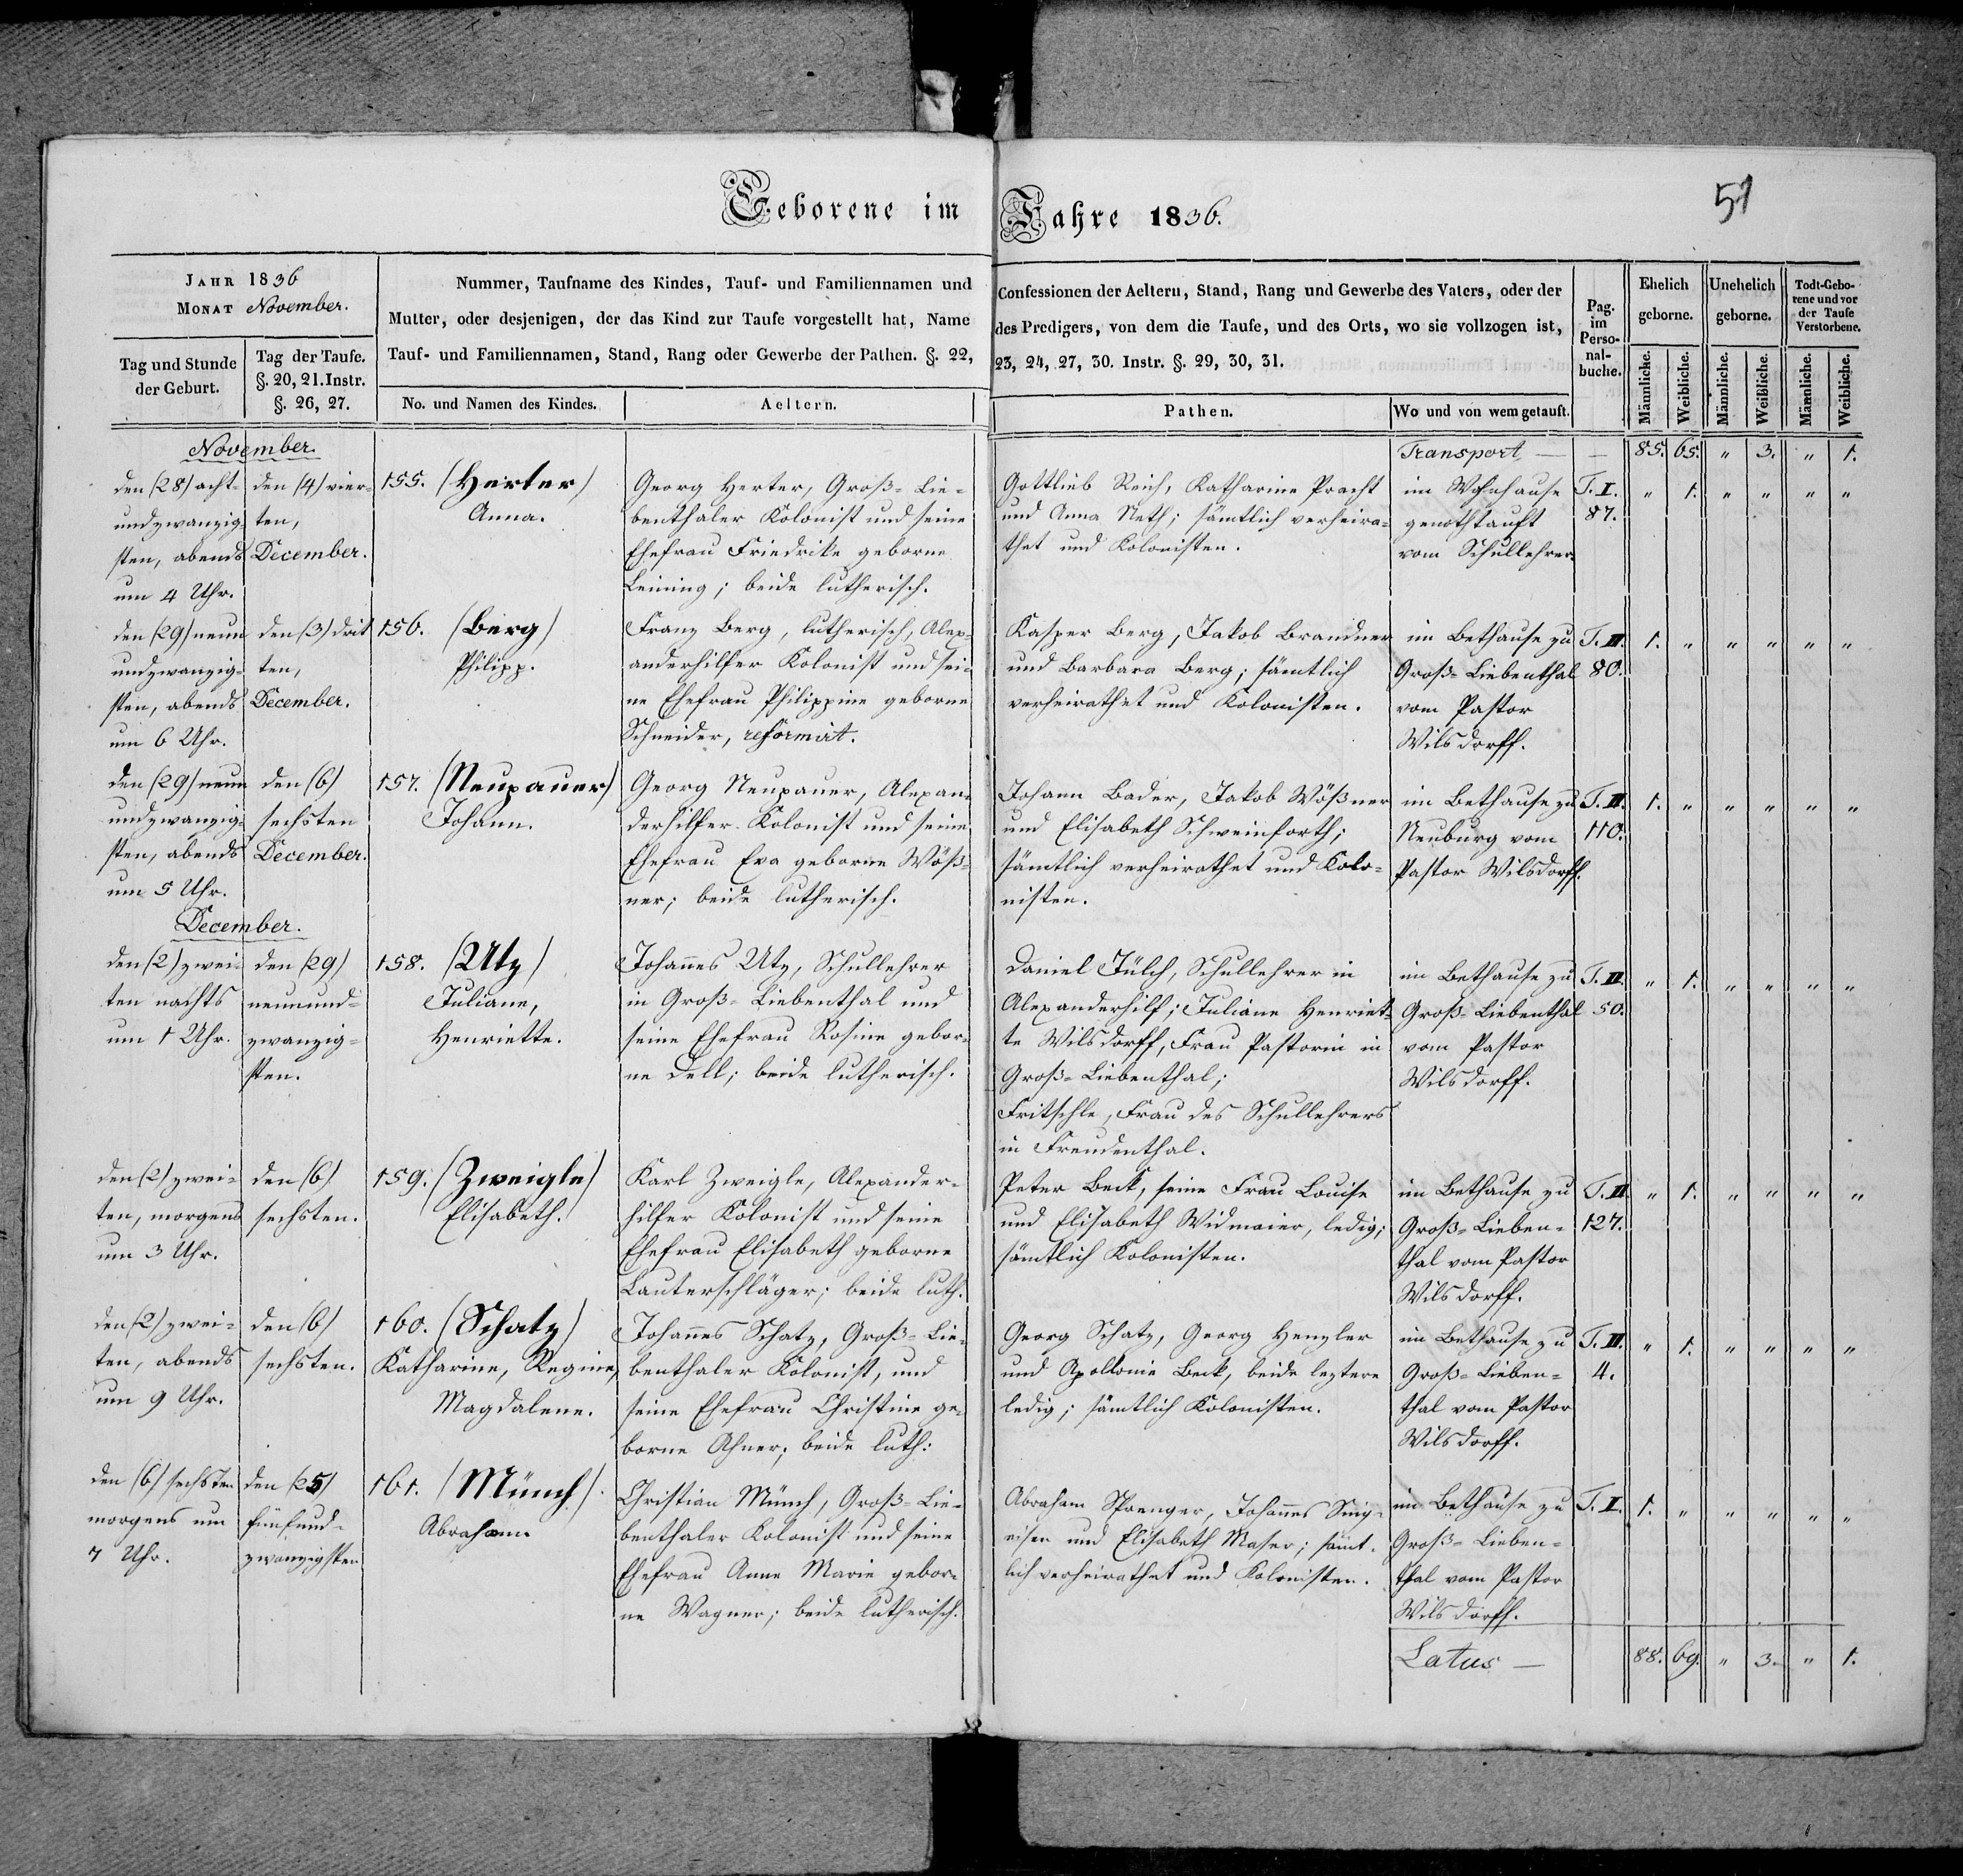 Geborene im Jahre 1836.
51
JAHR 1836
MONAT November.
Nummer, Taufname des Kindes, Tauf- und Familiennamen und
Mutter, oder desjenigen, der das Kind zur Taufe vorgestellt hat, Name
Tauf- und Familiennamen, Stand, Rang oder Gewerbe der Pathen. §. 22,
Confessionen der Aeltern, Stand, Rang und Gewerbe des Vaters, oder der
des Predigers, von dem die Taufe, und des Orts, wo sie vollzogen ist,
23, 24, 27, 30. Instr. §. 29, 30, 31.
Tag und Stunde
der Geburt.
Tag der Taufe.
§. 20, 21. Instr.
§. 26, 27.
No. und Namen des Kindes.
Aeltern.
Pathen.
Wo und von wem getauft.
Pag.
im
Perso-
nal-
buche.
Ehelich
geborne.
Unehelich
geborne.
Todt-Gebo-
rene und vor
der Taufe
Verstorbene.
Männliche.
Weibliche.
Männliche.
Weibliche.
Männliche.
Weibliche.
November.
Transport — — 85. 65. " 3. " 1.
den (28) acht-
undzwanzig-
sten, abends
um 4 Uhr.
den (4) vier-
ten,
December.
155. (Herter)
Anna.
Georg Herter, Groß-Lie-
benthaler Kolonist und seine
Ehefrau Friedrike geborne
Leining; beide lutherisch.
Gottlieb Reich, Katharine Pracht
und Anna Neth; sämtlich verheira-
thet und Kolonisten.
im Wohnhause
genothtauft
vom Schullehrer.
T. I.
87.
" 1. " " " "
den (29) neun
undzwanzig-
sten, abends
um 6 Uhr.
den (3) drit
ten,
December.
156. (Berg)
Philipp.
Franz Berg, lutherisch, Alex-
anderhilfer Kolonist und sei-
ne Ehefrau Philippine geborne
Schneider, reformirt.
Kasper Berg, Jakob Brandner
und Barbara Berg; sämtlich
verheirathet und Kolonisten.
im Bethause zu
Groß-Liebenthal
vom Pastor
Wilsdorff.
T. III.
80.
1. " " " " "
den (29) neun
undzwanzig-
sten, abends
um 5 Uhr.
den (6)
sechsten
December.
157. (Neupauer)
Johann.
Georg Neupauer, Alexan-
derhilfer Kolonist und seine
Ehefrau Eva geborne Wöß-
ner; beide lutherisch.
Johann Bader, Jakob Wößner
und Elisabeth Schweinforth;
sämtlich verheirathet und Kolo-
nisten.
im Bethause zu
Neuburg vom
Pastor Wilsdorff.
T. II.
110.
1. " " " " "
December.
den (2) zwei-
ten nachts
um 1 Uhr.
den (29)
neunund-
zwanzig-
sten.
158. (Utz)
Juliane,
Henriette.
Johannes Utz, Schullehrer
in Groß-Liebenthal und
seine Ehefrau Rosine gebor-
ne Dell; beide lutherisch.
Daniel Jülch, Schullehrer in
Alexanderhilf; Juliane Henriet-
te Wilsdorff, Frau Pastorin in
Groß-Liebenthal;
Fritschle, Frau des Schullehrers
in Freudenthal.
im Bethause zu
Groß-Liebenthal
vom Pastor
Wilsdorff.
T. III.
50.
" 1. " " " "
den (2) zwei-
ten, morgens
um 3 Uhr.
den (6)
sechsten.
159. (Zweigle)
Elisabeth.
Karl Zweigle, Alexander-
hilfer Kolonist und seine
Ehefrau Elisabeth geborne
Lauterschläger; beide luth.
Peter Beck, seine Frau Louise
und Elisabeth Widmaier, ledig;
sämtlich Kolonisten.
im Bethause zu
Groß-Lieben-
thal vom Pastor
Wilsdorff.
T. II.
127.
" 1. " " " "
den (2) zwei-
ten, abends
um 9 Uhr.
den (6)
sechsten.
160. (Schatz)
Katharine, Regine,
Magdalene.
Johannes Schatz, Groß-Lie-
benthaler Kolonist, und
seine Ehefrau Christine ge-
borne Ahner; beide luth:
Georg Schatz, Georg Henzler
und Apollonie Beck, beide leztere
ledig; sämtlich Kolonisten.
im Bethause zu
Groß-Lieben-
thal vom Pastor
Wilsdorff.
T. III.
4.
" 1. " " " "
den (6) sechsten
morgens um
7 Uhr.
den (25)
fünfund-
zwanzigsten
161. (Münch).
Abraham.
Christian Münch, Groß-Lie-
benthaler Kolonist und seine
Ehefrau Anne Marie gebor-
ne Wagner; beide lutherisch.
Abraham Sprenger, Johannes Sing-
eisen und Elisabeth Maser; sämt-
lich verheirathet und Kolonisten.
im Bethause zu
Groß-Lieben-
thal vom Pastor
Wilsdorff.
T. I.
1. " " " " "
Latus — 88. 69. " 3. " 1.